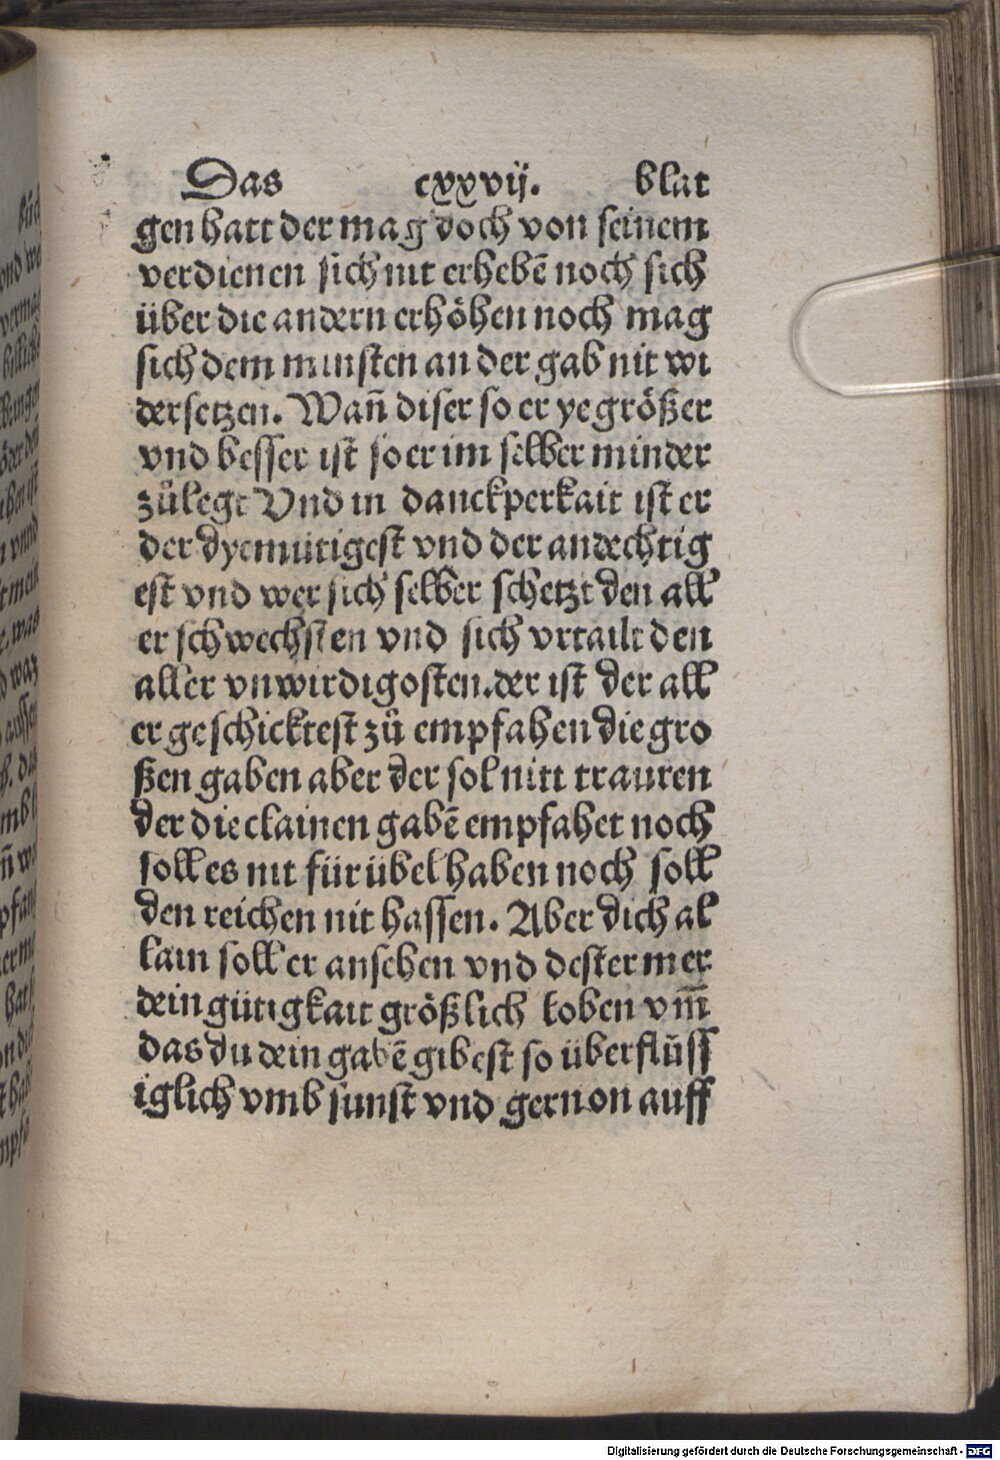 Das cxxvij. blat
gen hatt der mag doch von seinem
verdienen sich nit erhebē noch sich
über die andern erhöhen noch mag
sich dem minsten an der gab nit wi
dersetzen. Wañ diser so er ye größer
vnd besser ist so er im selber minder
zůlegt Vnd in danckperkait ist er
der dyemütigest vnd der andechtig
est vnd wer sich selber schetzt den all
er schwechsten vnd sich vrtailt den
aller vnwirdigosten. der ist der all
er geschicktest zů empfahen die gro
ßen gaben aber der sol nitt trauren
der die clainen gabē empfahet noch
soll es nit für übel haben noch soll
den reichen nit hassen. Aber dich al
lain soll er ansehen vnd dester mer
dein gütigkait größlich loben vm̄
das du dein gabē gibest so überflüss
iglich vmb sunst vnd gern on auff
Digitalisierung gefördert durch die Deutsche Forschungsgemeinschaft - DFG